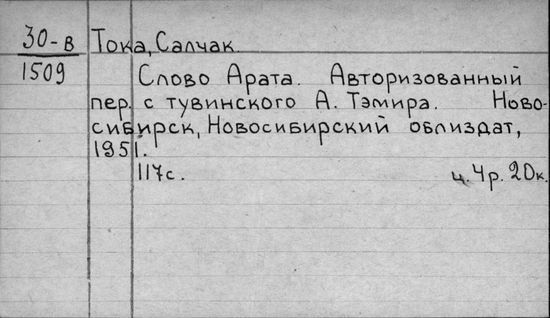 30-в Тока, Салчак
1509 Слово Арата. Авторизованный
пер. с тувинского А. Тэмира. Ново-
сибирск, Новосибирский облиздат,
1951.
117с. ц. 4р. 20к.